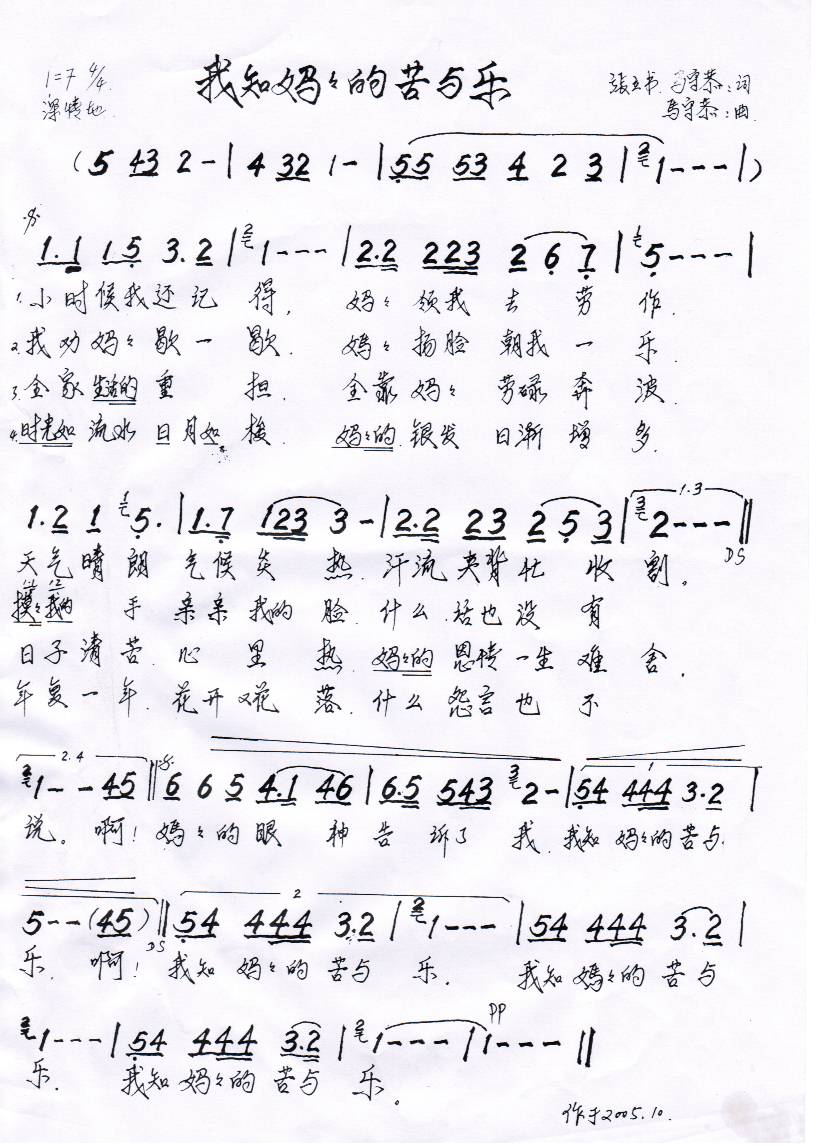 我知妈々的苦与乐
1=7 4/4
深情地
张玉书、马守恭:词
马守恭:曲
(5 43 2-|4 32 1-|55 53 4 2 3|2 1---|)
1.1 15 3.2|2 1---|2.2 223 2 6 7|6 5---|
1.小时候我还记得,妈々领我去劳作.
2.我劝妈々歇一歇.媽々扬脸朝我一乐.
3.全家生活的重担.全靠妈々劳碌奔波.
4.时光如流水日月如梭.妈々的银发日渐增多.
1.2 1 5.|1.7 123 3-|2.2 23 2 5 3|3 2---||
1.3
DS
天气晴朗气候炎热.汗流夹背忙收割。
摸々我的手亲亲我的脸.什么话也没有
日子清苦.心里热.妈々的恩情一生难舍.
年复一年.花开又花落.什么怨言也不
2.4
2 1--45||6 6 5 4.1 46|6.5 543 3 2-|54 444 3.2|
1
说。啊!媽々的眼神告诉了我.我知妈々的苦与
2
5--(45)||54 444 3.2|2 1---|54 444 3.2|
DS
乐.啊!我知妈々的苦与乐.我知媽々的苦与
PP
2 1---|54 444 3.2|2 1---|1---||
乐.我知妈々的苦与乐。
作于2005.10.